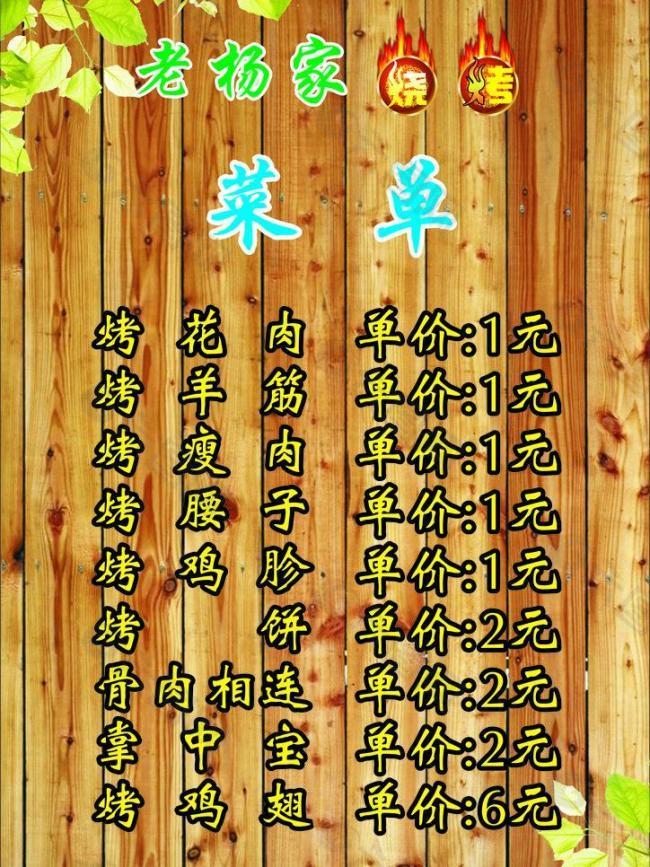 老杨家烧烤
菜单
烤花肉 单价:1元
烤羊筋 单价:1元
烤瘦肉 单价:1元
烤腰子 单价:1元
烤鸡胗 单价:1元
烤饼 单价:2元
骨肉相连 单价:2元
掌中宝 单价:2元
烤鸡翅 单价:6元